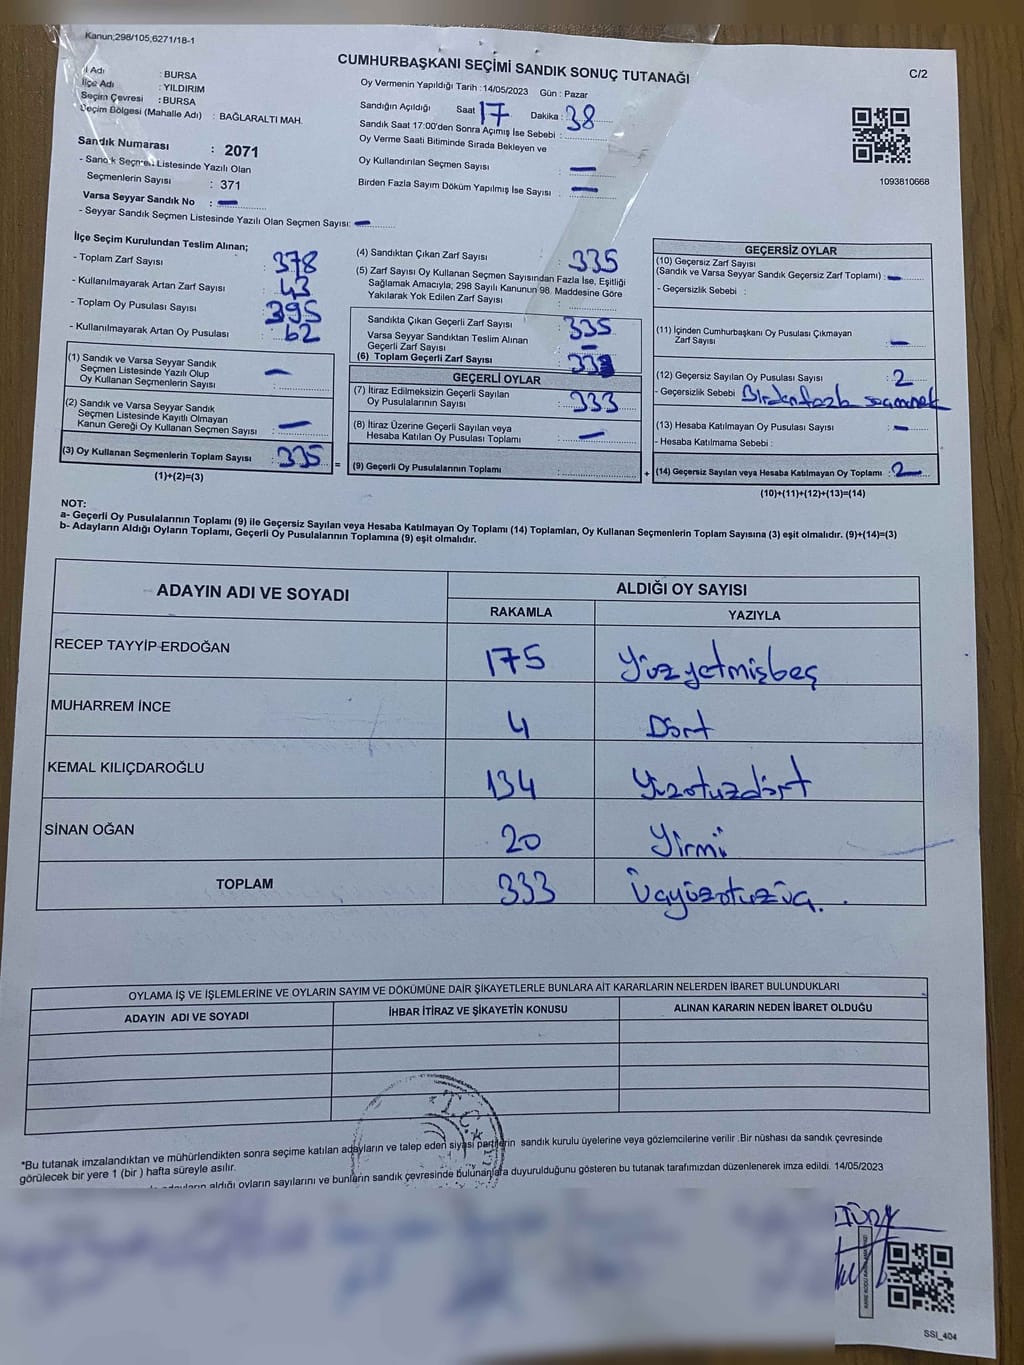 Kanun;298/105,6271/18-1
CUMHURBAŞKANI SEÇİMİ SANDIK SONUÇ TUTANAĞI
C/2
İl Adı : BURSA
İlçe Adı : YILDIRIM
Seçim Çevresi : BURSA
Seçim Bölgesi (Mahalle Adı) : BAĞLARALTI MAH.
Sandık Numarası : 2071
- Sandık Seçmen Listesinde Yazılı Olan
Seçmenlerin Sayısı : 371
Varsa Seyyar Sandık No : —
- Seyyar Sandık Seçmen Listesinde Yazılı Olan Seçmen Sayısı: —
Oy Vermenin Yapıldığı Tarih : 14/05/2023 Gün : Pazar
Sandığın Açıldığı Saat 17 Dakika : 38
Sandık Saat 17:00'den Sonra Açımış İse Sebebi :
Oy Verme Saati Bitiminde Sırada Bekleyen ve
Oy Kullandırılan Seçmen Sayısı : —
Birden Fazla Sayım Döküm Yapılmış İse Sayısı : —
1093810668
İlçe Seçim Kurulundan Teslim Alınan;
- Toplam Zarf Sayısı : 378
- Kullanılmayarak Artan Zarf Sayısı : 43
- Toplam Oy Pusulası Sayısı : 395
- Kullanılmayarak Artan Oy Pusulası : 62
(1) Sandık ve Varsa Seyyar Sandık
Seçmen Listesinde Yazılı Olup
Oy Kullanan Seçmenlerin Sayısı : —
(2) Sandık ve Varsa Seyyar Sandık
Seçmen Listesinde Kayıtlı Olmayan
Kanun Gereği Oy Kullanan Seçmen Sayısı : —
(3) Oy Kullanan Seçmenlerin Toplam Sayısı : 335 =
(1)+(2)=(3)
(4) Sandıktan Çıkan Zarf Sayısı : 335
(5) Zarf Sayısı Oy Kullanan Seçmen Sayısından Fazla İse, Eşitliği
Sağlamak Amacıyla; 298 Sayılı Kanunun 98. Maddesine Göre
Yakılarak Yok Edilen Zarf Sayısı :
Sandıkta Çıkan Geçerli Zarf Sayısı : 335
Varsa Seyyar Sandıktan Teslim Alınan
Geçerli Zarf Sayısı : —
(6) Toplam Geçerli Zarf Sayısı :
GEÇERLİ OYLAR
(7) İtiraz Edilmeksizin Geçerli Sayılan
Oy Pusulalarının Sayısı : 333
(8) İtiraz Üzerine Geçerli Sayılan veya
Hesaba Katılan Oy Pusulası Toplamı : —
(9) Geçerli Oy Pusulalarının Toplamı : +
GEÇERSİZ OYLAR
(10) Geçersiz Zarf Sayısı
(Sandık ve Varsa Seyyar Sandık Geçersiz Zarf Toplamı) : —
- Geçersizlik Sebebi :
(11) İçinden Cumhurbaşkanı Oy Pusulası Çıkmayan
Zarf Sayısı : —
(12) Geçersiz Sayılan Oy Pusulası Sayısı : 2
- Geçersizlik Sebebi : Birden fazla
(13) Hesaba Katılmayan Oy Pusulası Sayısı : —
- Hesaba Katılmama Sebebi :
(14) Geçersiz Sayılan veya Hesaba Katılmayan Oy Toplamı : 2
(10)+(11)+(12)+(13)=(14)
NOT:
a- Geçerli Oy Pusulalarının Toplamı (9) ile Geçersiz Sayılan veya Hesaba Katılmayan Oy Toplamı (14) Toplamları, Oy Kullanan Seçmenlerin Toplam Sayısına (3) eşit olmalıdır. (9)+(14)=(3)
b- Adayların Aldığı Oyların Toplamı, Geçerli Oy Pusulalarının Toplamına (9) eşit olmalıdır.
ADAYIN ADI VE SOYADI
ALDIĞI OY SAYISI
RAKAMLA YAZIYLA
RECEP TAYYİP ERDOĞAN 175 Yüzyetmişbeş
MUHARREM İNCE 4 Dört
KEMAL KILIÇDAROĞLU 134 Yüzotuzdört
SİNAN OĞAN 20 Yirmi
TOPLAM 333 Üçyüzotuzüç.
OYLAMA İŞ VE İŞLEMLERİNE VE OYLARIN SAYIM VE DÖKÜMÜNE DAİR ŞİKAYETLERLE BUNLARA AİT KARARLARIN NELERDEN İBARET BULUNDUKLARI
ADAYIN ADI VE SOYADI İHBAR İTİRAZ VE ŞİKAYETİN KONUSU ALINAN KARARIN NEDEN İBARET OLDUĞU
T.C.
*Bu tutanak imzalandıktan ve mühürlendikten sonra seçime katılan adayların ve talep eden siyasi partilerin sandık kurulu üyelerine veya gözlemcilerine verilir .Bir nüshası da sandık çevresinde
görülecek bir yere 1 (bir ) hafta süreyle asılır.
aldığı oyların sayılarını ve bunların sandık çevresinde bulunanlara duyurulduğunu gösteren bu tutanak tarafımızdan düzenlenerek imza edildi. 14/05/2023
SSI_404